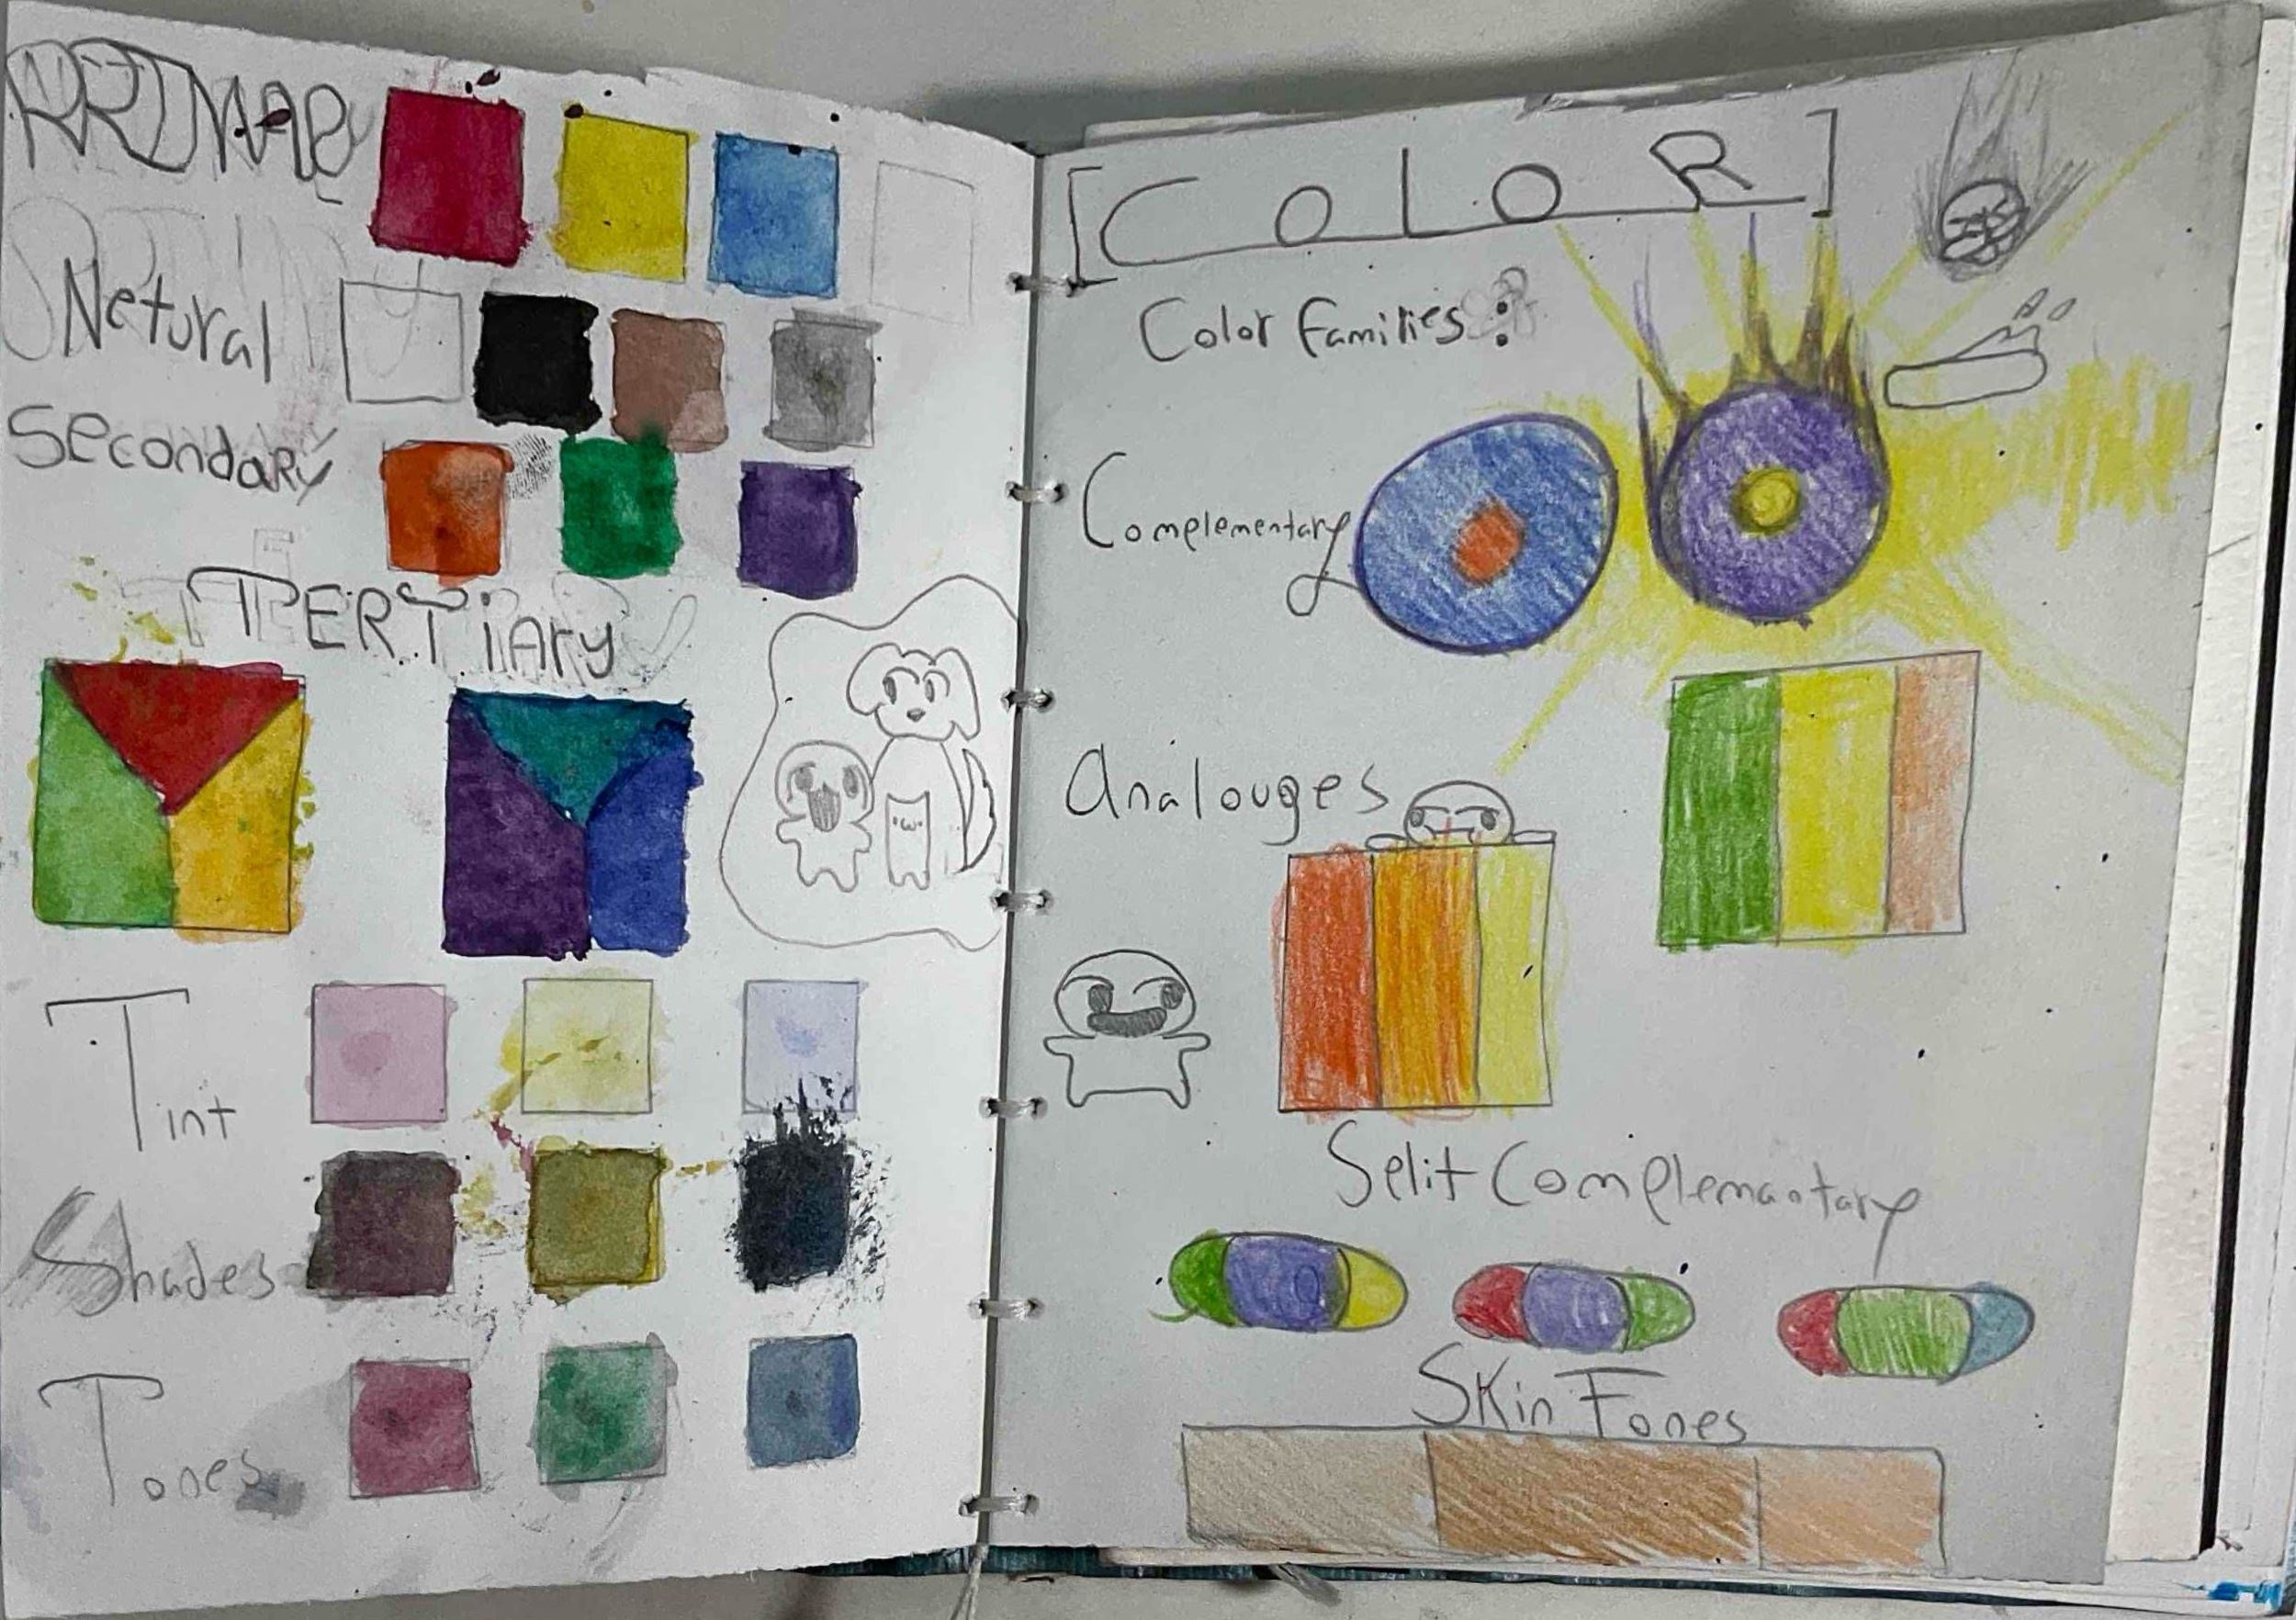 Netural
Secondary
TERTiAry
Tint
Shades
Tones
[COLOR]
Color families:
Complementary
Analouges
Split Complemantary
Skin Tones